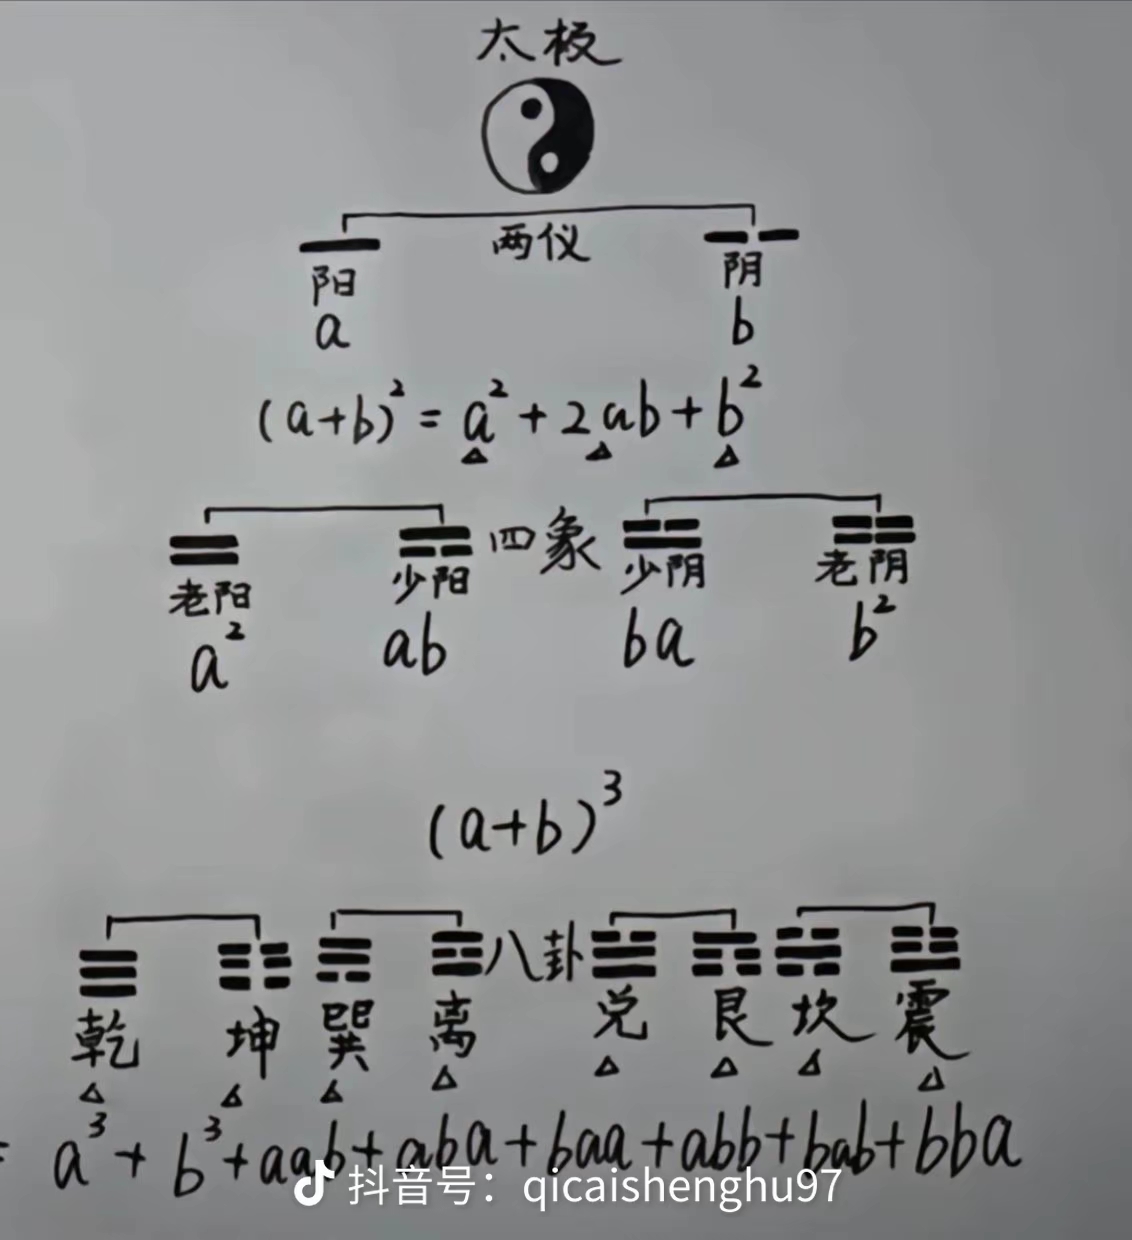 太极
两仪
阳 阴
a b
(a+b)² = a² + 2ab + b²
四象
老阳 少阳 少阴 老阴
a² ab ba b²
(a+b)³
八卦
乾 坤 巽 离 兑 艮 坎 震
= a³ + b³ + aab + aba + baa + abb + bab + bba
抖音号: qicaishenghu97